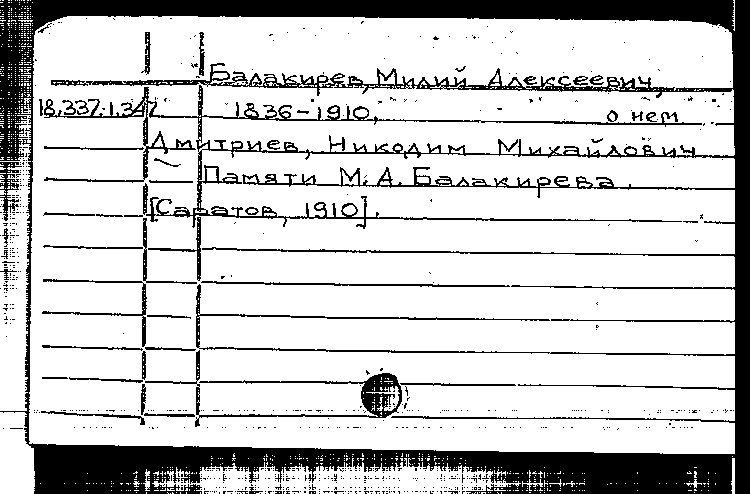 Балакирев, Милий Алексеевич,
18.337.1.347 1836-1910, о нем
Дмитриев, Никодим Михайлович
Памяти М.А. Балакирева.
[Саратов, 1910].